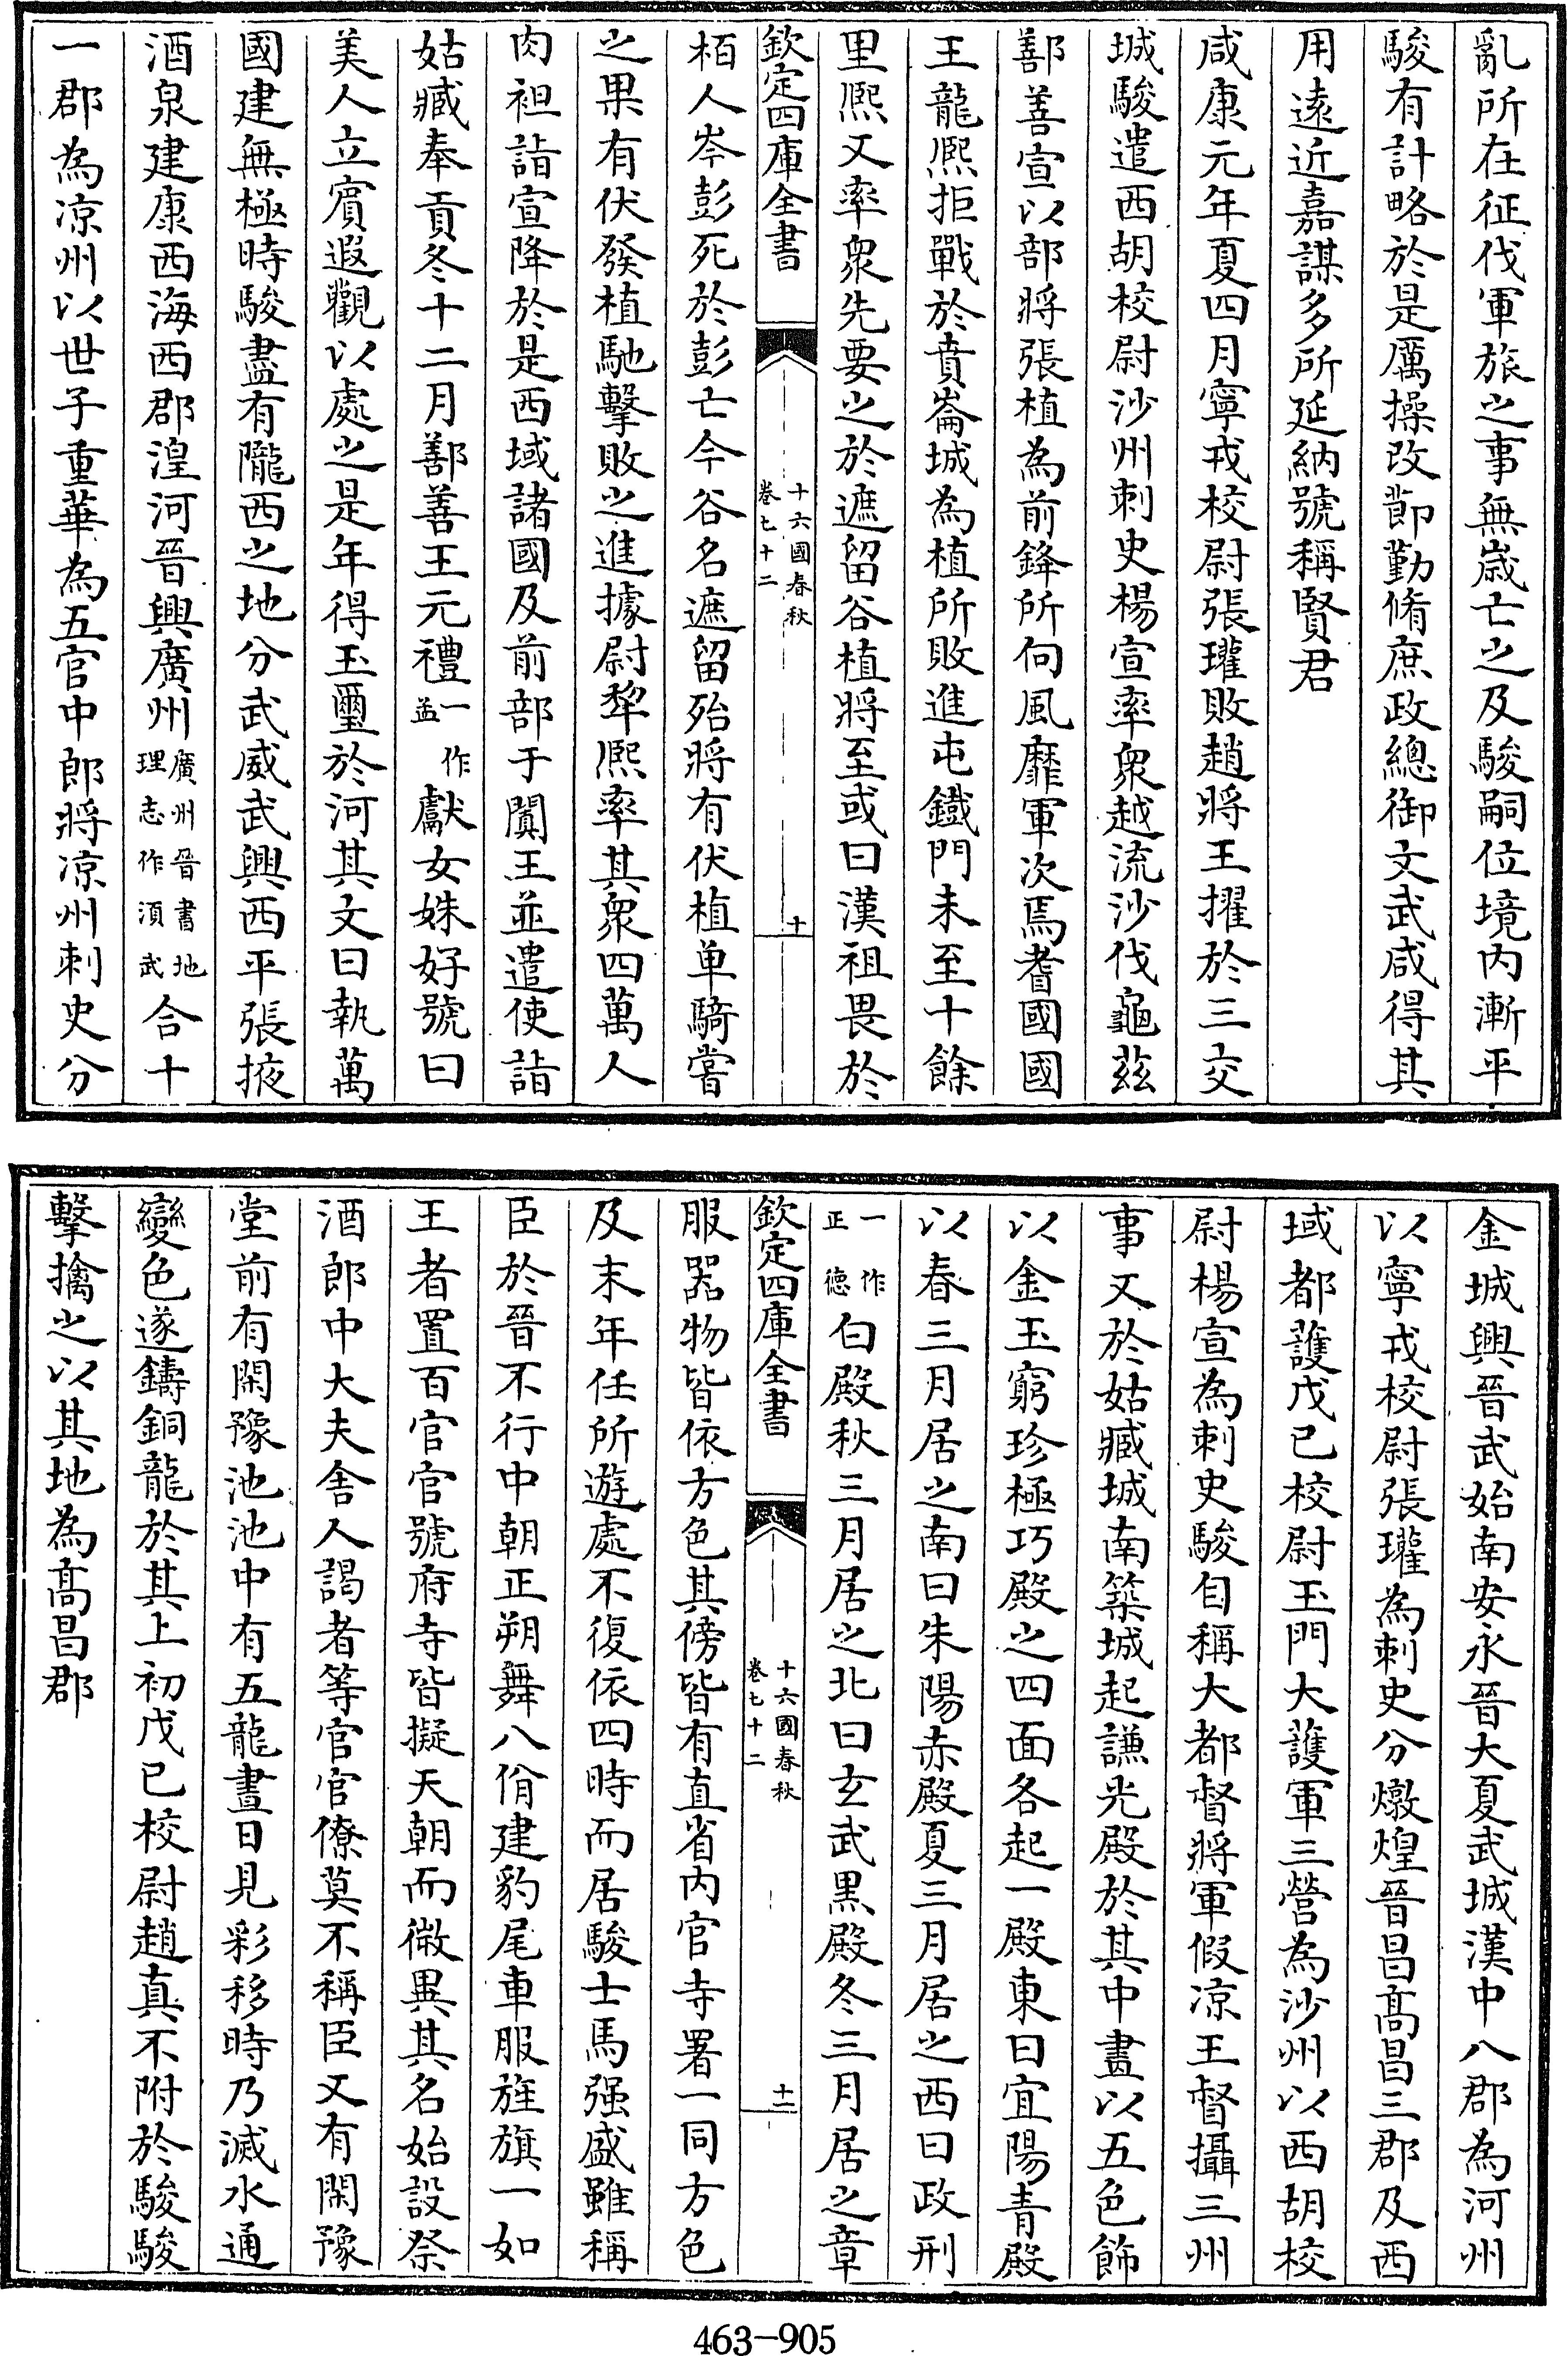 亂所在征伐軍旅之事無歳亡之及駿嗣位境内漸平
駿有計略於是厲操改節勤脩庶政總御文武咸得其
用遠近嘉謀多所延納號稱賢君
咸康元年夏四月寧戎校尉張瓘敗趙將王擢於三交
城駿遣西胡校尉沙州刺史楊宣率衆越流沙伐龜兹
鄯善宣以部將張植為前鋒所向風靡軍次焉耆國國
王龍熈拒戰於賁崙城為植所敗進屯鐵門未至十餘
里熈又率衆先要之於遮留谷植將至或曰漢祖畏於
欽定四庫全書
十六國春秋
卷七十二
十
栢人岑彭死於彭亡今谷名遮留殆將有伏植单騎嘗
之果有伏發植馳擊敗之進據尉犂熈率其衆四萬人
肉袒詣宣降於是西域諸國及前部于闐王並遣使詣
姑臧奉貢冬十二月鄯善王元禮一作孟獻女姝好號曰
美人立賓遐觀以處之是年得玉璽於河其文曰執萬
國建無極時駿盡有隴西之地分武威武興西平張掖
酒泉建康西海西郡湟河晉興廣州廣州晉書地理志作湏武合十
一郡為凉州以世子重華為五官中郎將凉州刺史分
金城興晉武始南安永晉大夏武城漢中八郡為河州
以寧戎校尉張瓘為刺史分燉煌晉昌髙昌三郡及西
域都護戊已校尉玉門大護軍三營為沙州以西胡校
尉楊宣為刺史駿自稱大都督將軍假凉王督攝三州
事又於姑臧城南築城起謙光殿於其中畫以五色飾
以金玉窮珍極巧殿之四面各起一殿東曰宜陽青殿
以春三月居之南曰朱陽赤殿夏三月居之西曰政刑
一作正德白殿秋三月居之北曰玄武黒殿冬三月居之章
欽定四庫全書
十六國春秋
卷七十二
十一
服器物皆依方色其傍皆有直省内官寺署一同方色
及末年任所遊處不復依四時而居駿士馬强盛雖稱
臣於晉不行中朝正朔舞八佾建豹尾車服旌旗一如
王者置百官官號府寺皆擬天朝而微異其名始設祭
酒郎中大夫舍人謁者等官官僚莫不稱臣又有閑豫
堂前有閑豫池池中有五龍晝日見彩移時乃滅水通
變色遂鑄銅龍於其上初戊已校尉趙真不附於駿駿
擊擒之以其地為髙昌郡
463-905